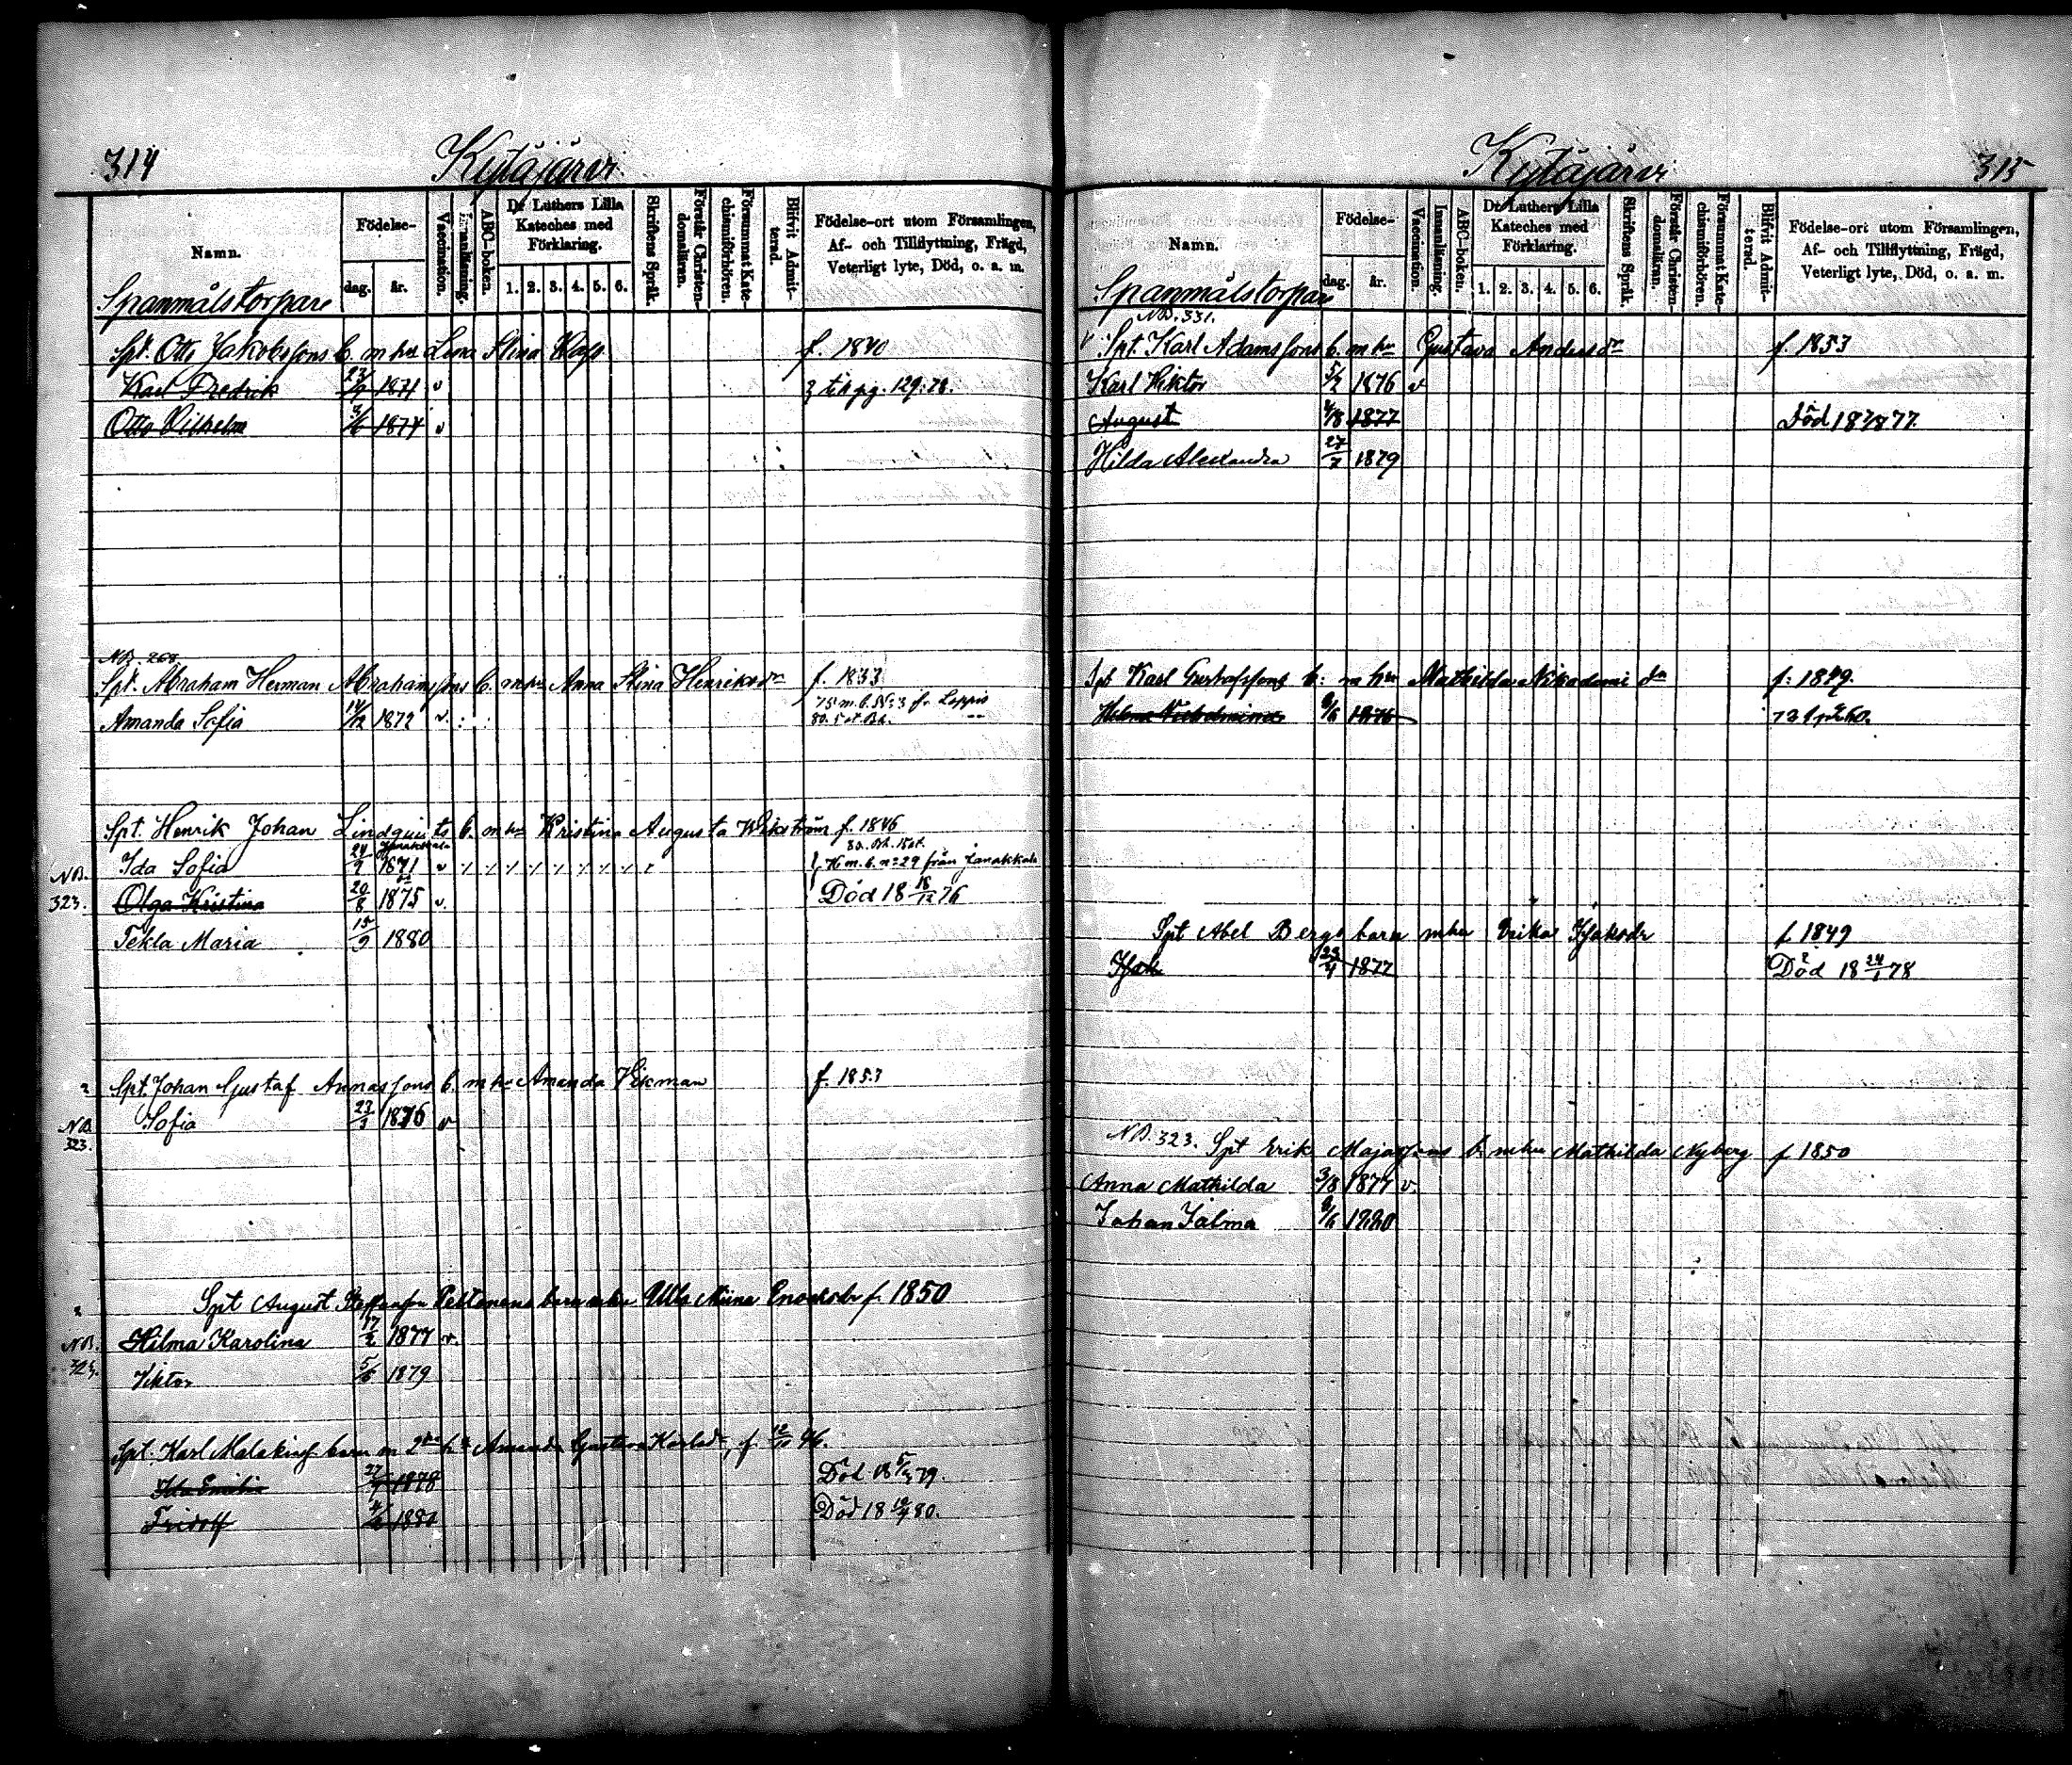 314
Kytäjärvi
Namn.
Födelse-
dag.
år.
Vaccination.
Innanläsning.
ABC-boken.
Dr Luthers Lilla Kateches med Förklaring.
1. 2. 3. 4. 5. 6.
Skriftens Språk.
Förstår Christendomsläran.
Försummat Katechismiförhören.
Blifvit Admitterad.
Födelse-ort utom Församlingen, Af- och Tillflyttning, Frägd, Veterligt lyte, Död, o. a. m.
Spanmålstorpare
Spt. Otto Jakobssons b. m hu Lena Stina f. 1840
Karl Fredrik 1871 v pg. 129. 78.
Otto Vilhelm 1874 v
NB. 268.
Spt. Abraham Herman Abrahamssons b. m hu Anna Stina Henriksdr f. 1833
75 m. b. No 3 fr. Loppis
Amanda Sofia 14/12 1872 v.
Spt. Henrik Johan Lindquists b. m hu Kristina Augusta Wikström f. 1846
NB. Ida Sofia 24/9 1871 v m. b. no 29 från Janakkala
323. Olga Kristina 20/8 1875 v. Död 18 18/12 76
Tekla Maria 15/9 1880
Spt. Johan Gustaf Annassons b. m hu Amanda Vikman f. 1853
NB. 323. Sofia 1876 v
Spt August Steffansson Peltonens barn m hu Ulla Miina Enoksdr f. 1850
NB. Hilma Karolina 17/2 1877 v.
323. Viktor 5/6 1879
Spt. Karl Malakias barn m 2dra hu Amanda Gustava Karlsdr, f. 46.
Ida Emilia 1878 Död 18 79.
Fridolf 1880 Död 18 80.
Kytäjärvi
315
Namn.
Födelse-
dag.
år.
Vaccination.
Innanläsning.
ABC-boken.
Dr Luthers Lilla Kateches med Förklaring.
1. 2. 3. 4. 5. 6.
Skriftens Språk.
Förstår Christendomsläran.
Försummat Katechismiförhören.
Blifvit Admitterad.
Födelse-ort utom Församlingen, Af- och Tillflyttning, Frägd, Veterligt lyte, Död, o. a. m.
Spanmålstorpare
NB. 331.
Spt. Karl Adamssons b. m hu Gustava Andersdr f. 1853
Karl Viktor 5/2 1876 v
August 1877 Död 18 77.
Hilda Alexandra 27/7 1879
Spt Karl Gustafssons b. m hu Mathilda Nikademidr f. 1849.
Hilma Vilhelmina 1876
Spt Abel Bergs barn m hu Erika Isaksdr f. 1849
Isak 23/4 1877 Död 18 24/1 78
NB. 323. Spt Erik Majassons b. m hu Mathilda Nyberg f 1850
Anna Mathilda 3/8 1877 v.
Johan Jalmar 1880